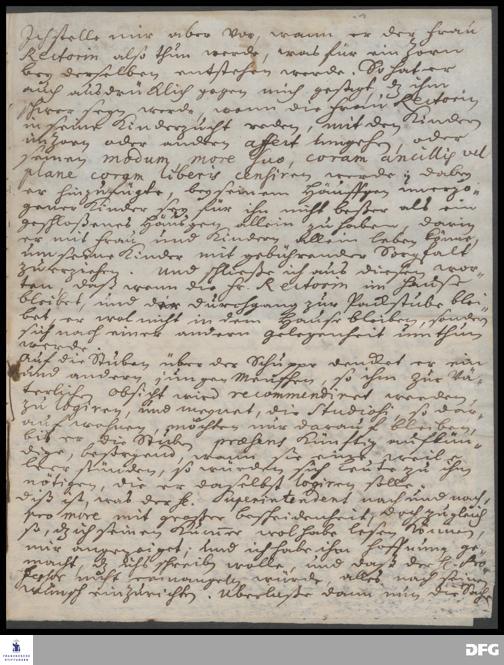 Ich stelle mir aber vor, wann er der Frau
Rectorin also thun werde, was für ein Zorn
bey derselben entstehen werde. So hat er
auch ausdrüklich gegen mich gesagt, dz ihm
schwer seyn werde, wenn die Frau Rectorin
in seine Kinderzucht reden, mit den Kindern
im zorn oder andern affect umgehen, oder
seinen modum, more suo, coram ancillis vel
plane coram liberis censiren werde; dabey
er hinzufügte, bey seinem Häuffgen unerzo-
gener Kinder sey für ihn nichts besser als ein
geschloßenes Häusgen allein zu haben, darin
er mit Frau und Kindern allein leben könne,
um seine Kinder mit gebührender Sorgfalt
zu erziehen. Und schließe ich aus diesen wor-
ten, daß wenn die Fr. Rectorin im Hause
bleibet, und der Durchgang zur Packstube blei-
bet, er wol nicht in dem Hause bleiben, sondern
sich nach einer andern gelegenheit umthun
werde.
Auf die Stuben über der Schuppe denket er ein
und andern jungen Menschen, so ihm zur Vä-
terlichen Obsicht wird recommendiret werden,
zu logiren, und meynet, die Studiosi, so dar-
auf wohnen, möchten nur darauf bleiben,
bis er die Stuben præsens künftig aufkün-
dige, wann sie eine weil
leer stünden, so würden sich Leute zu ihm
nötigen, die er daselbst logiren solle.
Diß ist, was der H. Superintendent nach und nach,
pro more mit großer bescheidenheit, doch zugleich
so, dz ich seinen Kummer wol habe lesen können,
mir angezeiget; und ich habe ihm hoffnung ge-
macht, dz ichs schreiben wolle und daß der H. Pro-
fessor nicht ermangeln würde, alles nach seinem
Wunsch einzurichten. Uberlaße dann nun die Sache
FRANCKESCHE
STIFTUNGEN
DFG